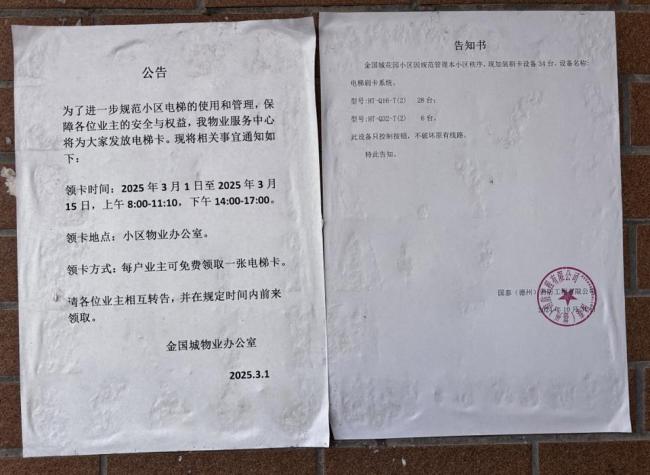 公告
为了进一步规范小区电梯的使用和管理，保
障各位业主的安全与权益，我物业服务中心
将为大家发放电梯卡。现将相关事宜通知如
下：
领卡时间：2025 年 3 月 1 日至 2025 年 3 月
15 日，上午 8:00-11:10，下午 14:00-17:00。
领卡地点：小区物业办公室。
领卡方式：每户业主可免费领取一张电梯卡。
请各位业主相互转告，并在规定时间内前来
领取。
金国城物业办公室
2025.3.1
告知书
金国城花园小区因规范管理本小区秩序，现加装刷卡设备 34 台，设备名称：
电梯刷卡系统。
型号：HT-Q16-T(2) 28 台；
型号：HT-Q32-T(2) 6 台。
此设备只控制按钮，不破坏原有线路。
特此告知。
国泰（德州）
有限公